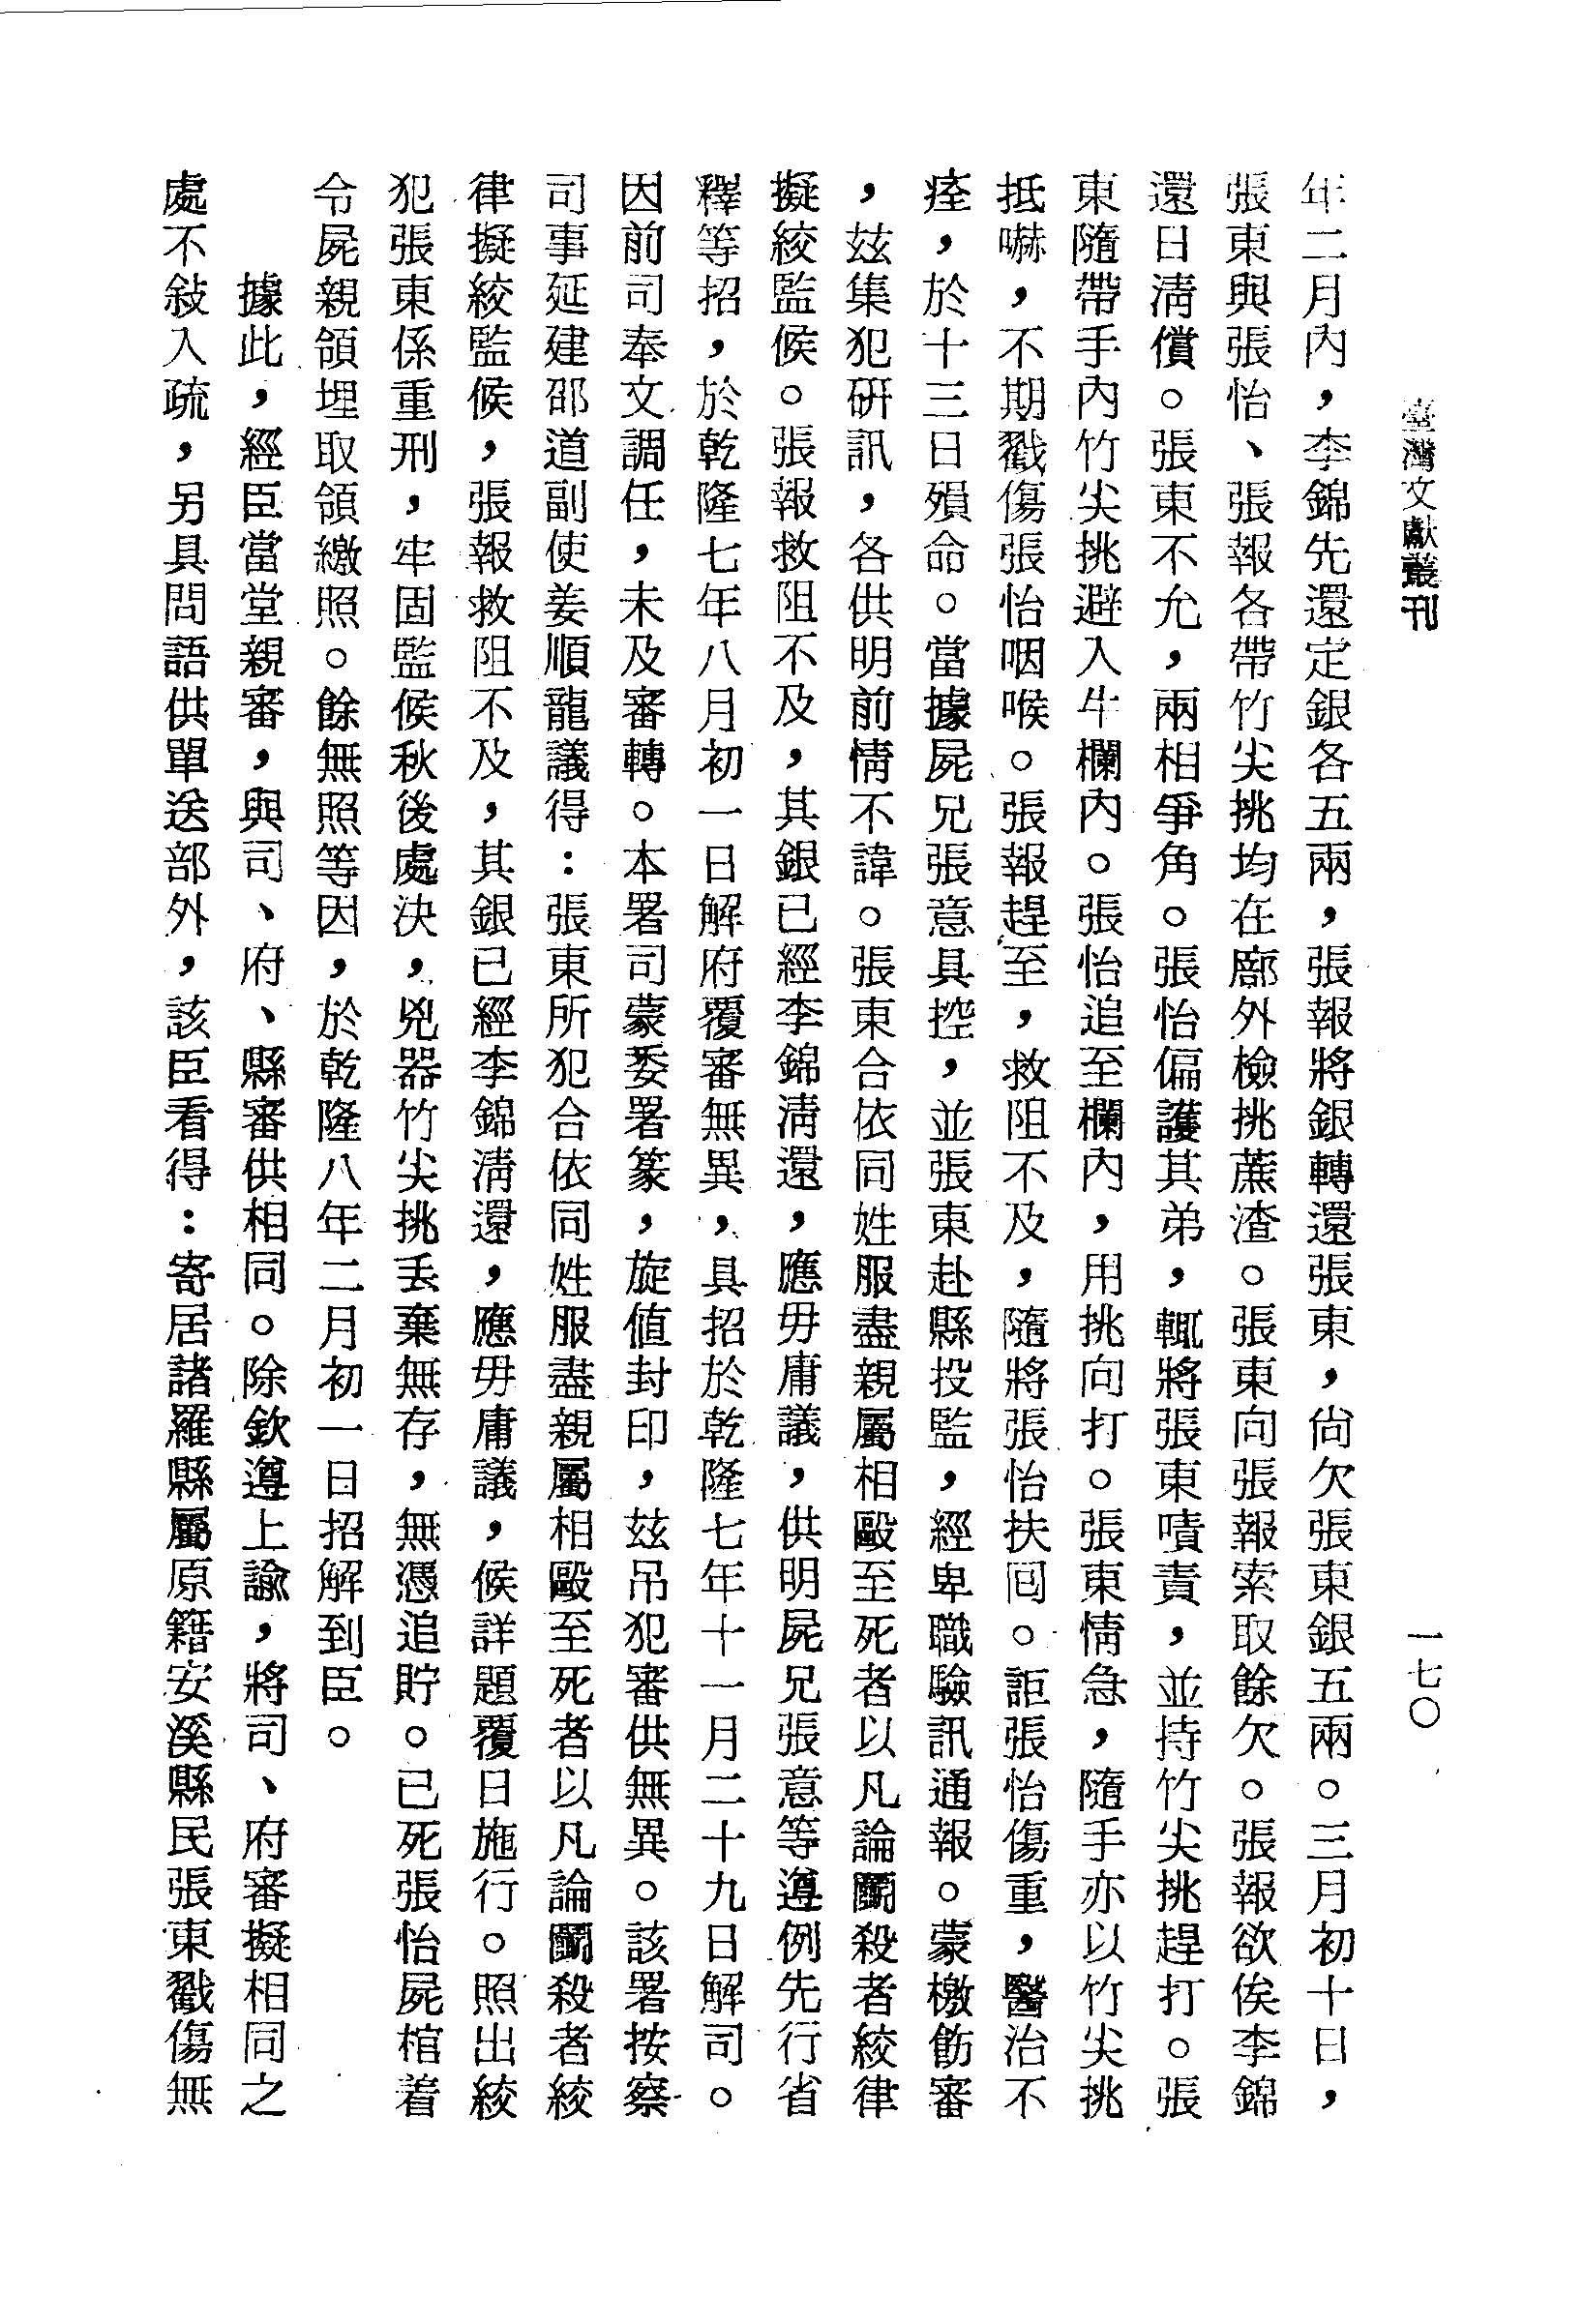 臺灣文獻叢刊
一七〇
年二月內，李錦先還定銀各五兩，張報將銀轉還張東，尙欠張東銀五兩。三月初十日，
張東與張怡、張報各帶竹尖挑均在廍外檢挑蔗渣。張東向張報索取餘欠。張報欲俟李錦
還日淸償。張東不允，兩相爭角。張怡偏護其弟，輒將張東嘖責，並持竹尖挑趕打。張
東隨帶手內竹尖挑避入牛欄內。張怡追至欄內，用挑向打。張東情急，隨手亦以竹尖挑
抵嚇，不期戳傷張怡咽喉。張報趕至，救阻不及，隨將張怡扶回。詎張怡傷重，醫治不
痊，於十三日殞命。當據屍兄張意具控，並張東赴縣投監，經卑職驗訊通報。蒙檄飭審
，玆集犯硏訊，各供明前情不諱。張東合依同姓服盡親屬相毆至死者以凡論鬭殺者絞律
擬絞監候。張報救阻不及，其銀已經李錦淸還，應毋庸議，供明屍兄張意等遵例先行省
釋等招，於乾隆七年八月初一日解府覆審無異，具招於乾隆七年十一月二十九日解司。
因前司奉文調任，未及審轉。本署司蒙委署篆，旋値封印，玆吊犯審供無異。該署按察
司事延建邵道副使姜順龍議得：張東所犯合依同姓服盡親屬相毆至死者以凡論鬭殺者絞
律擬絞監候，張報救阻不及，其銀已經李錦淸還，應毋庸議，候詳題覆日施行。照出絞
犯張東係重刑，牢固監候秋後處決，兇器竹尖挑丟棄無存，無憑追貯。已死張怡屍棺着
令屍親領埋取領繳照。餘無照等因，於乾隆八年二月初一日招解到臣。
據此，經臣當堂親審，與司、府、縣審供相同。除欽遵上諭，將司、府審擬相同之
處不敍入疏，另具問語供單送部外，該臣看得：寄居諸羅縣屬原籍安溪縣民張東戳傷無